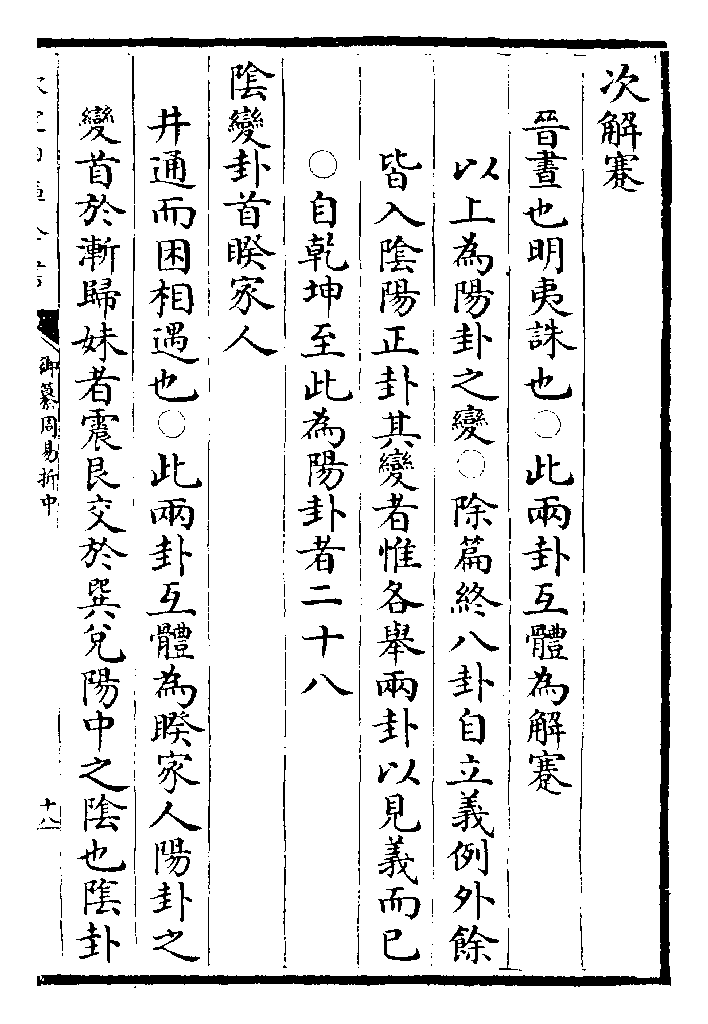 次解蹇
晉晝也明夷誅也○此兩卦互體為解蹇
以上為陽卦之變○除篇終八卦自立義例外餘
皆入陰陽正卦其變者惟各舉兩卦以見義而已
○自乾坤至此為陽卦者二十八
陰變卦首睽家人
井通而困相遇也○此兩卦互體為睽家人陽卦之
變首於漸歸妹者震艮交於巽兌陽中之陰也陰卦
御纂周易折中
十八